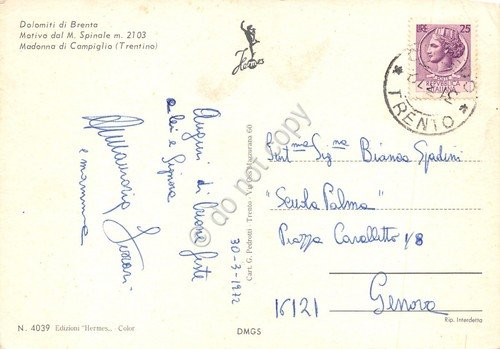 Dolomiti di Brenta
Motivo dal M. Spinale m. 2103
Madonna di Campiglio (Trentino)
Hermes
LIRE 25
REPUBBLICA
ITALIANA
* TRENTO *
Auguri di buone feste
a lei e Signora
30-3-1972
e mamma
Cart. G. Pedrotti - Trento - 60
Gent ma Sig na Bianca Spadini
"Scuola Palma"
Piazza Cavalletto 1/8
16121 Genova
Rip. Interdetta
N. 4039 Edizioni "Hermes„ - Color
DMGS
do not copy